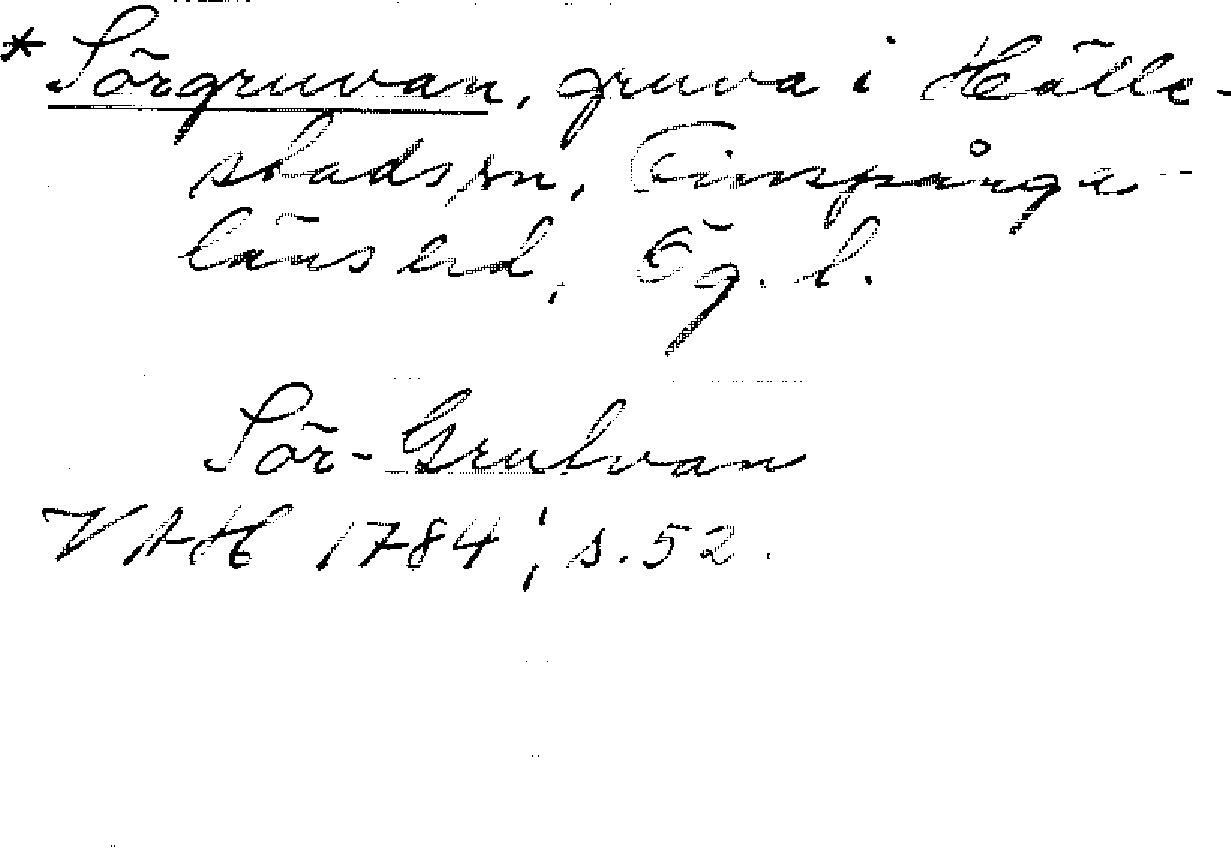 * Sörgruvan, gruva i Hälle-
stads sn, Finspånga
läns hd, Ög. l.
Sör-Grufvan
VAH 1784, s. 52.